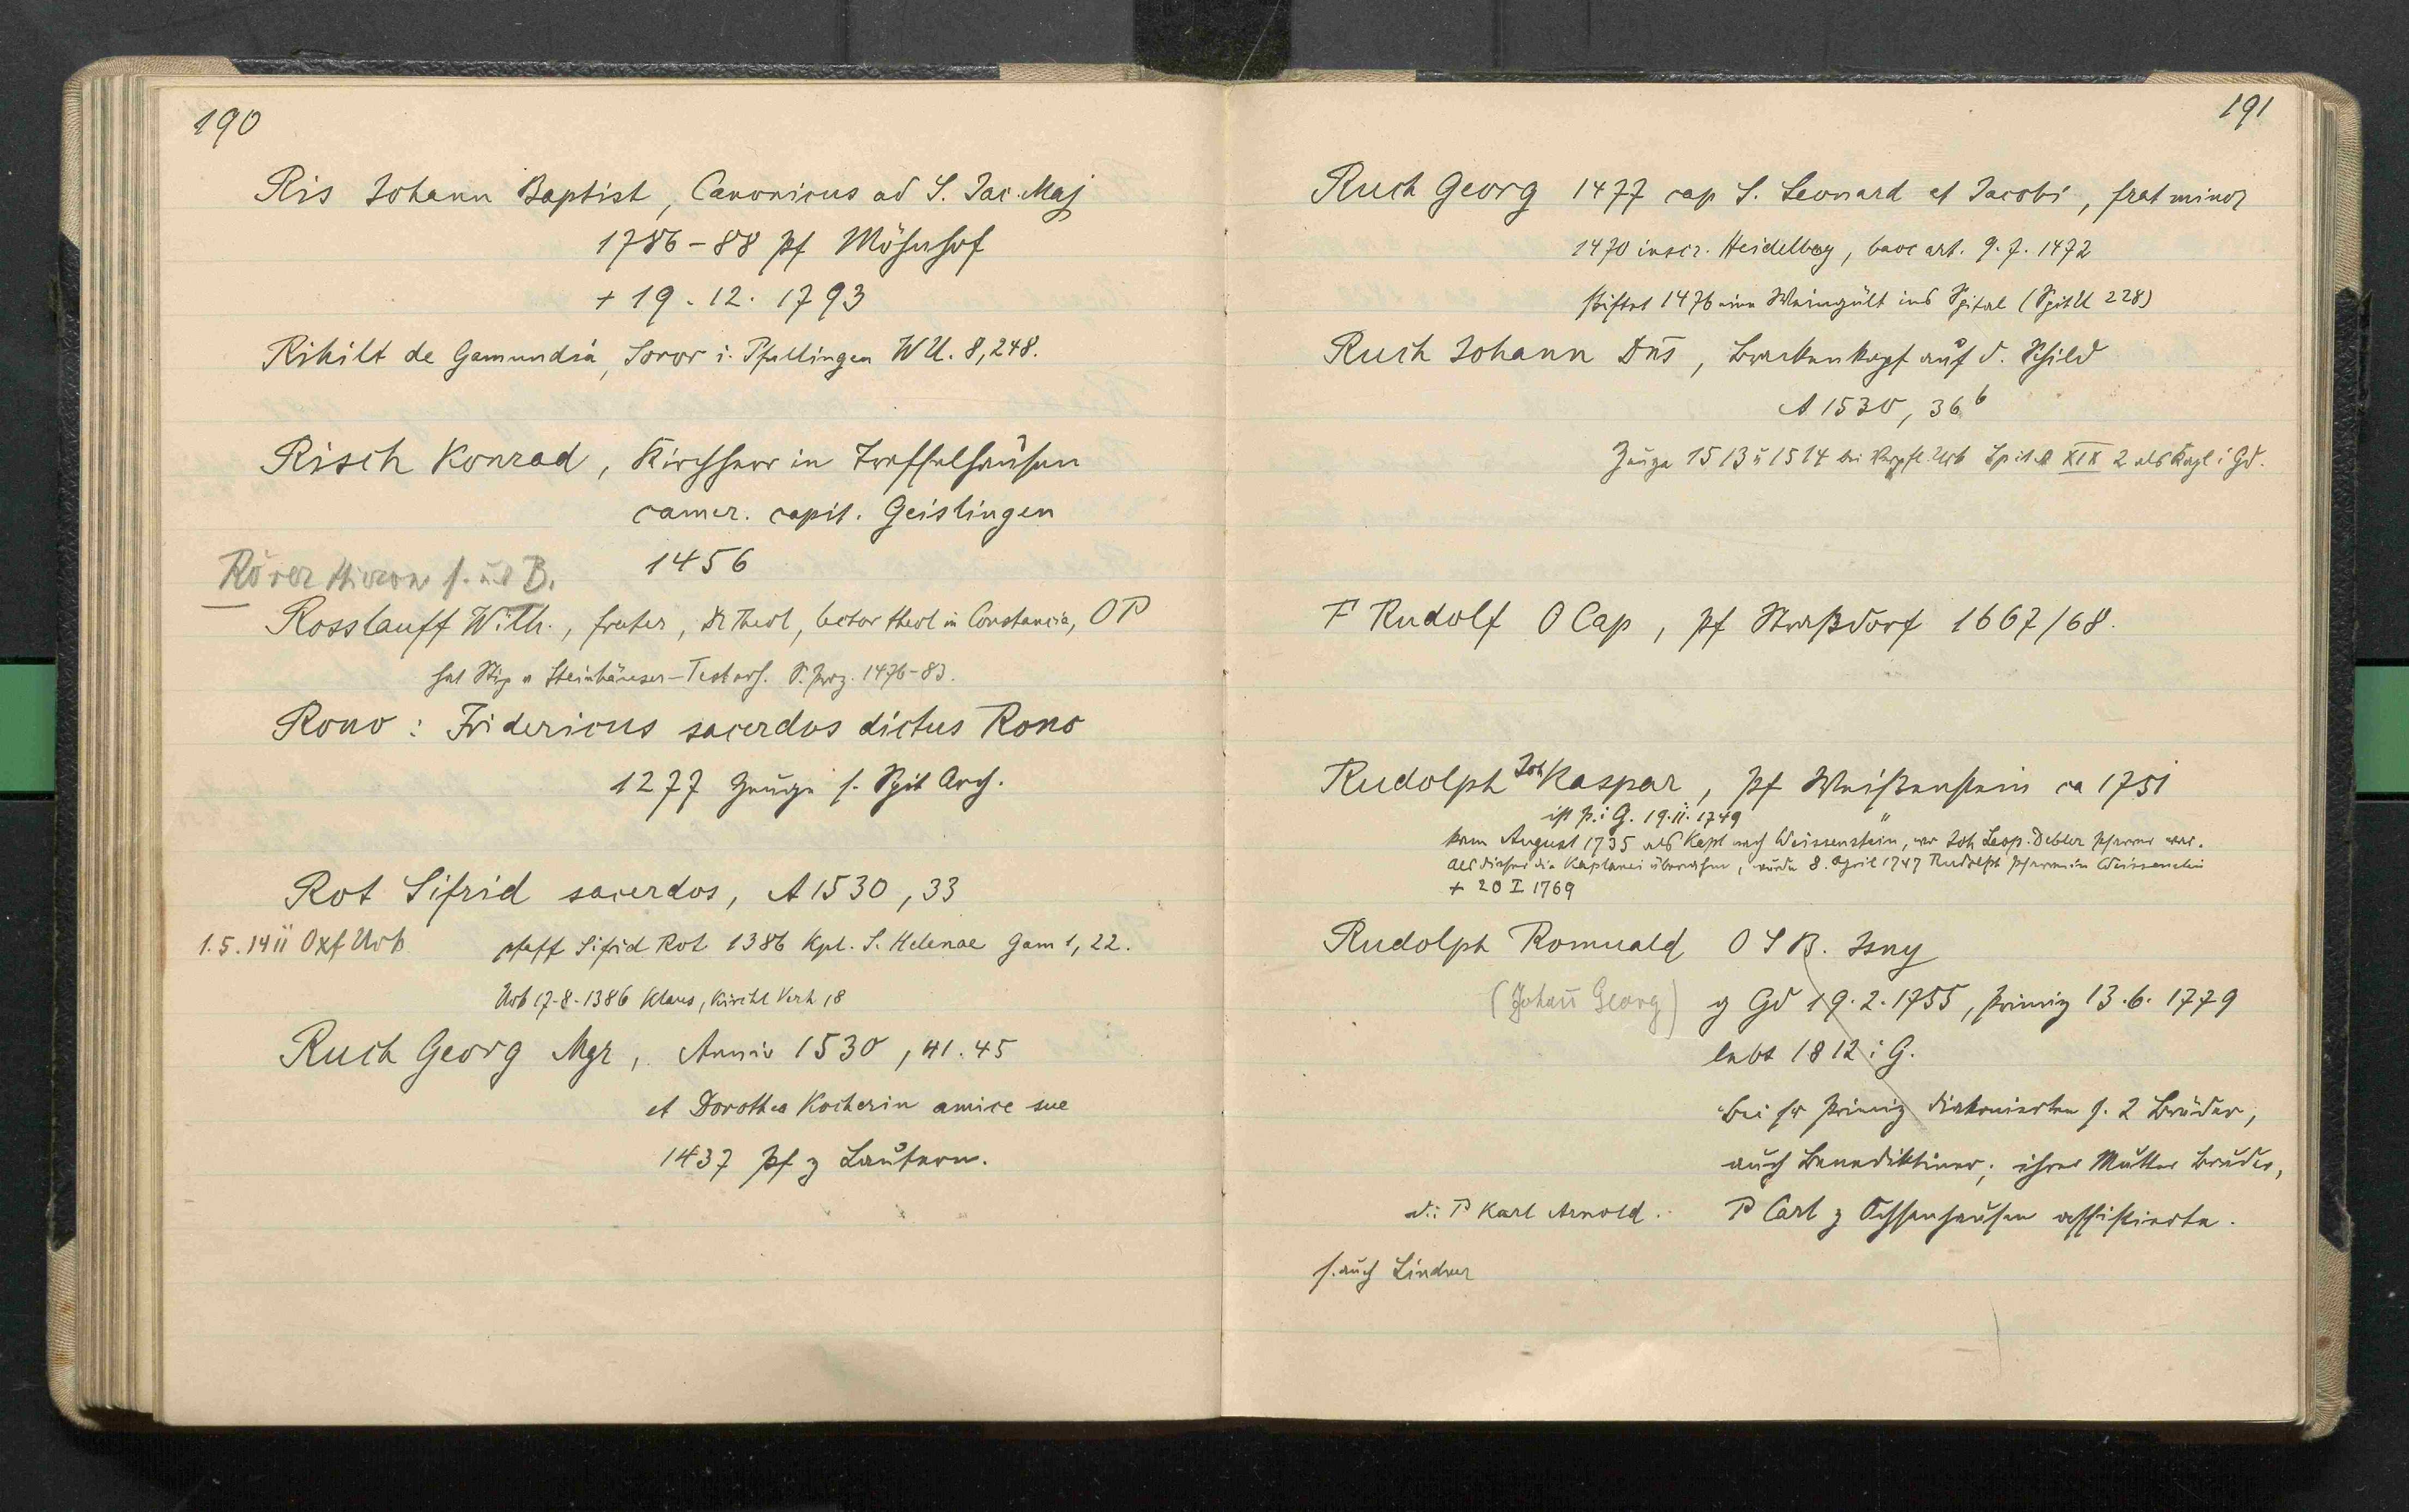 190
Ris Johann Baptist, Canonicus ad S. Jac. Maj
1786-88 Pf Mösnhof
+ 19.12.1793
Rihilt de Gamundia, Soror i. Pfullingen WU. 8,248.
Risch Konrad, Kirchherr in Treffelhausen
camer. capit. Geislingen
1456
Rörer Hieron s. ... B.
Rosslauff Wilh., frater, Dr Theol, lector theol in Constancia, OP
hat Stip v Steinhäuser-Test erh. S. Prz. 1476-83.
Rono: Fridericus sacerdos dictus Rono
1277 Zeuge s. Spit Arch.
Rot Sifrid sacerdos, A 1530, 33
1.5.1411 Oxf Urk
pfaff Sifrid Rot 1386 Kpl. S. Helenae Gam 1, 22.
Urk 17.8.1386 Klaus, Kirchl Verh 18
Ruch Georg Mgr, Anniv 1530, 41.45
et Dorothea Kocherin amice sue
1437 Pf z Lautern.
191
Ruch Georg 1477 cap S. Leonard et Jacobi, frat minor
1470 inscr. Heidelberg, bacc art. 9.7.1472
stiftet 1476 eine Weingült ins Spital (SpitU 228)
Ruch Johann Dns, Brackenkopf auf d. Schild
A 1530, 36b
Zeuge 1513 u 1514 bei Urk Spit XIX 2 als Kapl i Gd.
F Rudolf O Cap, Pf Straßdorf 1667/68.
Rudolph Joh Kaspar, Pf Weißenstein ca 1751
ist P. i G. 19.11.1749
kam August 1735 als Kapl nach Weissenstein, wo Joh Leop. Debler Pfarrer war.
Als dieser die Kaplanei übernahm, wurde 8. April 1747 Rudolph Pfarrer in Weissenstein
+ 20 I 1769
Rudolph Romuald O S B. Isny
(Johañ Georg) g Gd 19.2.1755, Primiz 13.6.1779
lebt 1812 i G.
Bei sr Primiz diakonierten s. 2 Brüder,
auch Benediktiner; ihrer Mutter Bruder,
d.i. P Karl Arnold. P Carl z Ochsenhausen assistierte.
s. auch Lindner